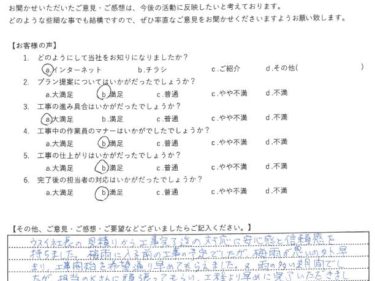 お聞かせいただいたご意見・ご感想は、今後の活動に反映したいと考えております。
どのような些細な事でも結構ですので、ぜひ率直なご意見をお聞かせくださいますようお願い致します。
【お客様の声】
1. どのようにして当社をお知りになりましたか？
a.インターネット b.チラシ c.ご紹介 d.その他(
2. プラン提案についてはいかがだったでしょうか？
a.大満足 b.満足 c.普通 c.やや不満 d.不満
3. 工事の進み具合はいかがだったでしょうか？
a.大満足 b.満足 c.普通 c.やや不満 d.不満
4. 工事中の作業員のマナーはいかがでしたでしょうか？
a.大満足 b.満足 c.普通 c.やや不満 d.不満
5. 工事の仕上がりはいかがだったでしょうか？
a.大満足 b.満足 c.普通 c.やや不満 d.不満
6. 完了後の担当者の対応はいかがだったでしょうか？
a.大満足 b.満足 c.普通 c.やや不満 d.不満
【その他、ご意見・ご感想・ご要望などございましたらご記入ください。】
ウスイ社長の見積りから工事完了迄の対応に安心感と信頼感を
持ちました。梅雨に入る前の工事の予定でしたが、梅雨が思いのほか早
まり、工事開始を希望通り早めてもらえました。雨の多い期間でし
たが 担当の さんに頑張ってもらい、工程より早めに完了いただきまし